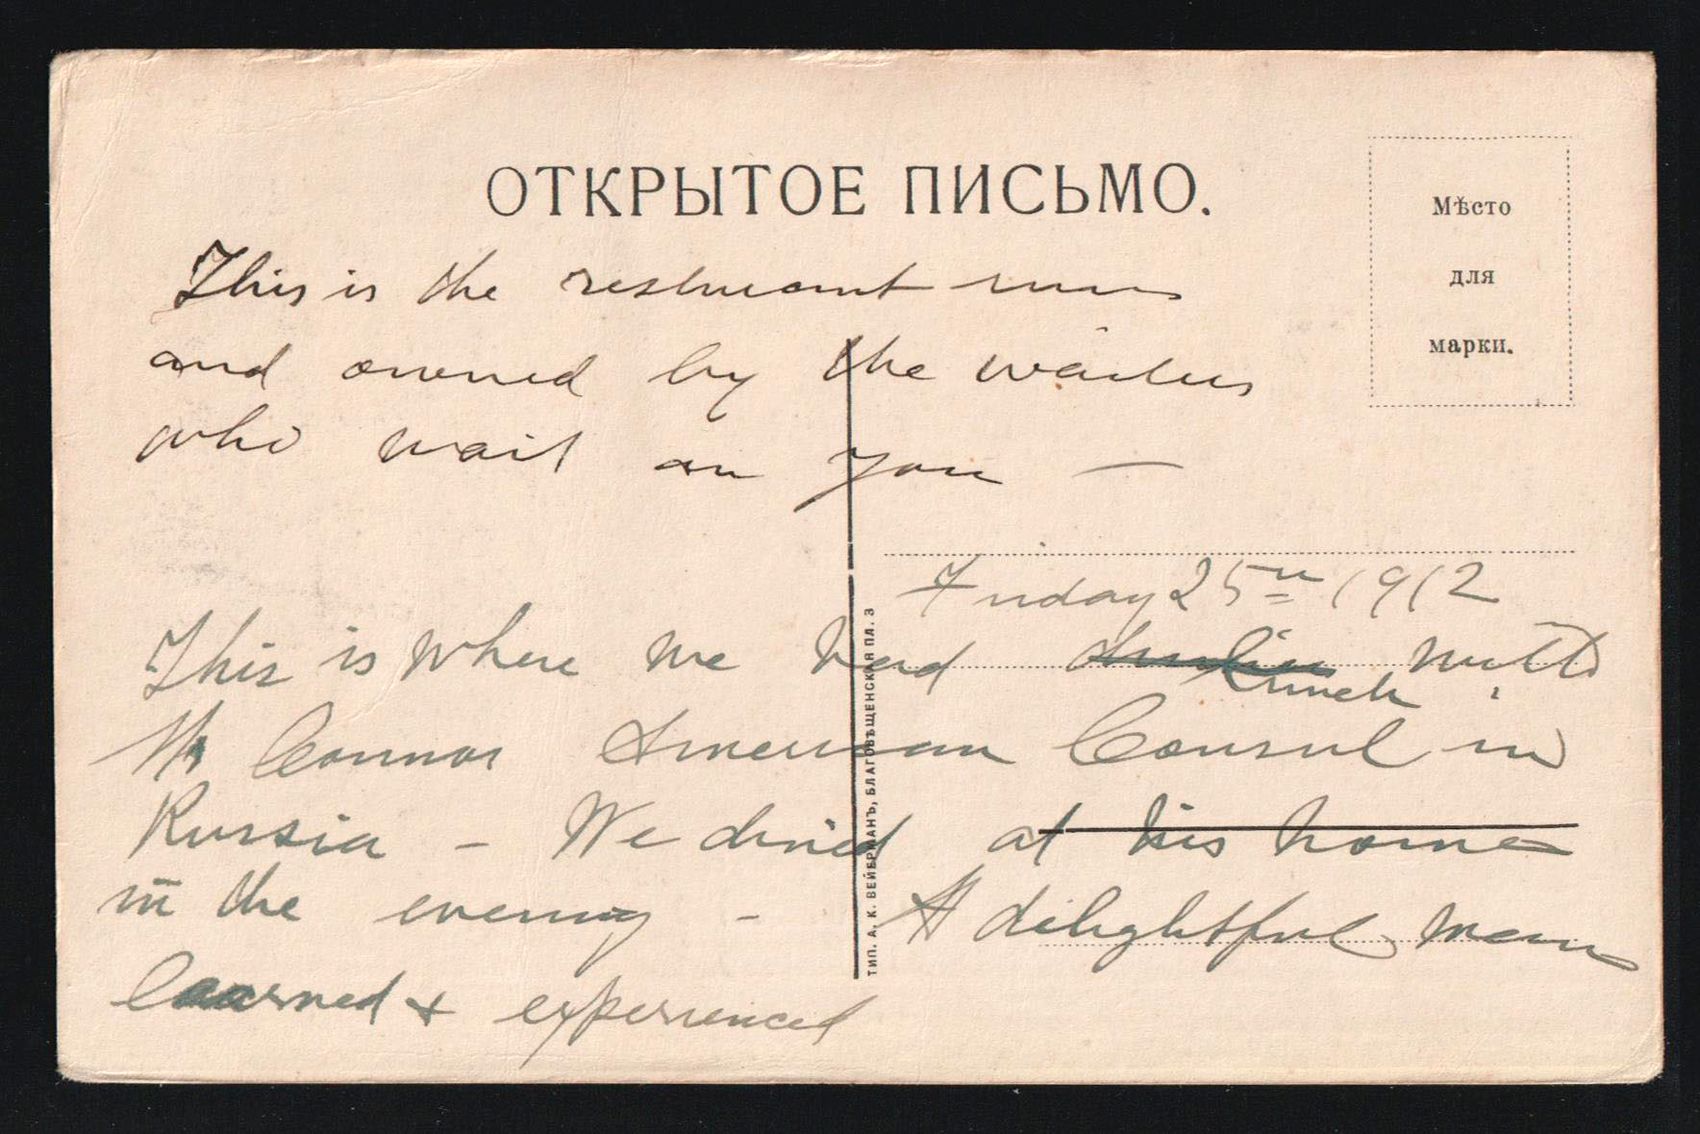 ОТКРЫТОЕ ПИСЬМО.
Мѣсто
для
марки.
This is the restuarant run
and owned by the waiters
who wait on you —
Friday 25th 1912
This is where we had lunch with
Mr Connor American Consul in
Russia - We dined at his home
in the evening - A delightful man
learned + experienced
ТИП. А. К. ВЕЙЕРМАНЪ, БЛАГОВѢЩЕНСКАЯ ПЛ. 3